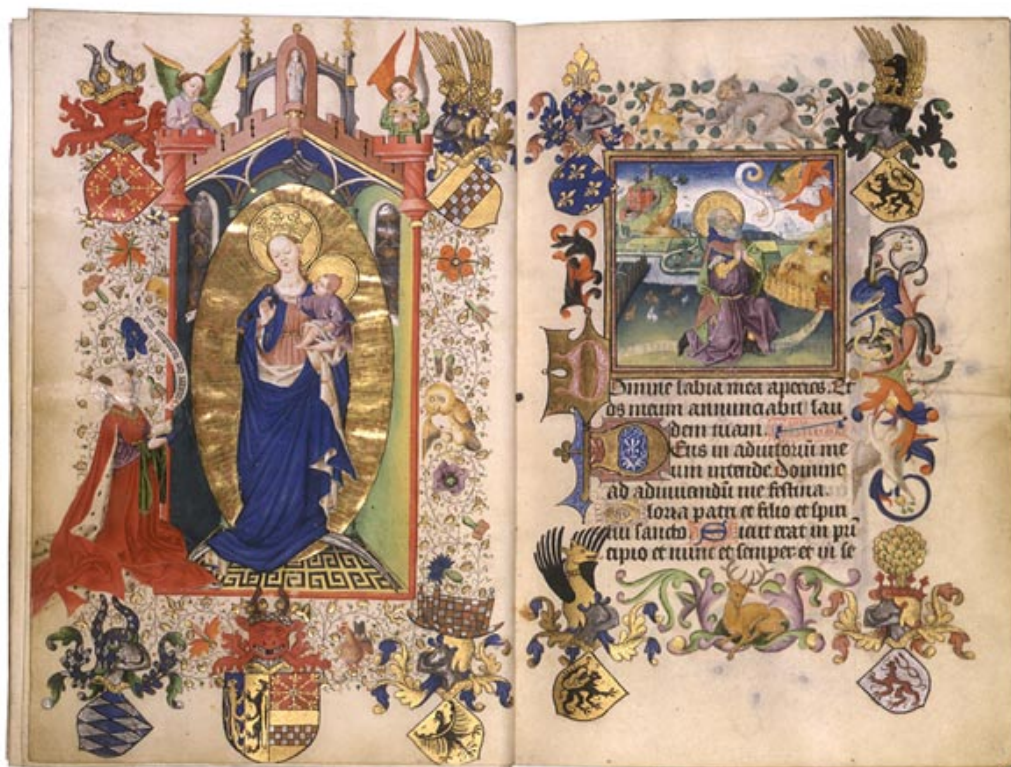 Domine labia mea aperies. Et
os meum annunciabit lau
dem tuam.
Deus in adiutoriū me
um intende Domine
ad adiuvendū me festina
Gloria patri et filio et spiri
tui sancto. Sicut erat in prī
cipio et nunc et semper et in se